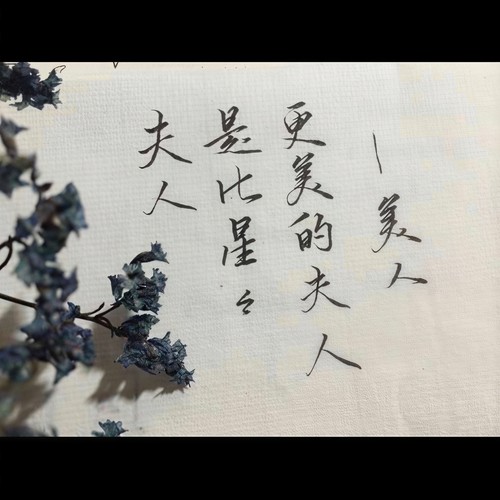 夫人
是比星々
更美的夫人
—美人